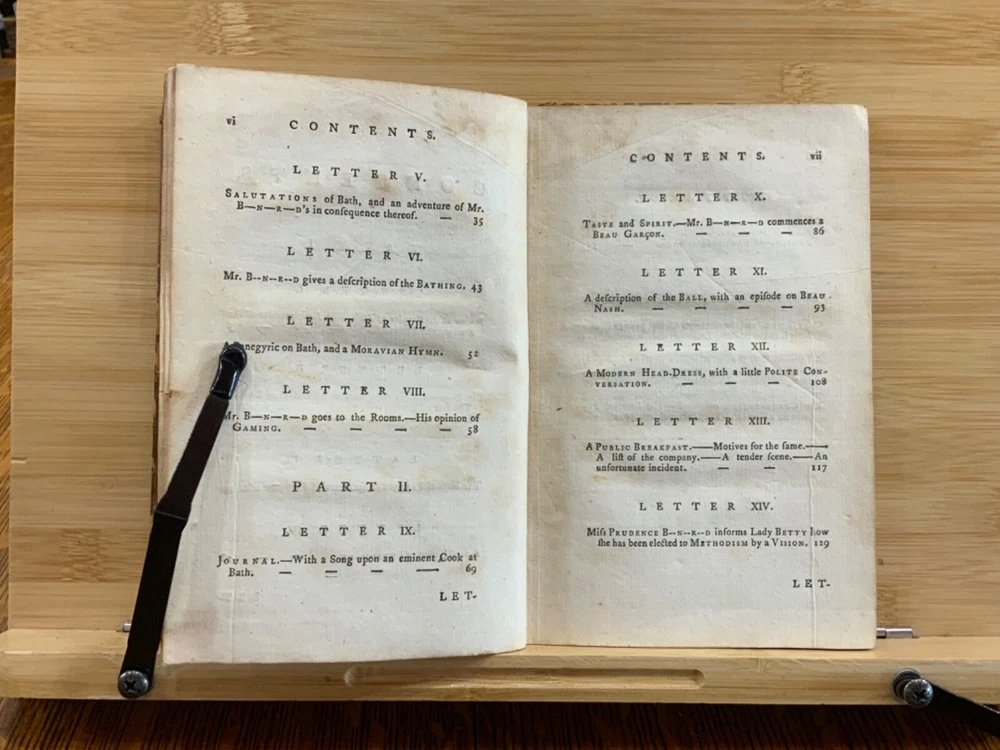 vi CONTENTS.
LETTER V.
SALUTATIONS of Bath, and an adventure of Mr.
B—N—R—D's in conſequence thereof. — 35
LETTER VI.
Mr. B--N--R--D gives a deſcription of the BATHING, 43
LETTER VII.
negyric on Bath, and a MORAVIAN HYMN. 52
LETTER VIII.
Mr. B—N—R—D goes to the Rooms.—His opinion of
GAMING. — — — — 58
PART II.
LETTER IX.
JOURNAL.—With a Song upon an eminent Cook at
Bath. — — — — 69
LET-
CONTENTS. vii
LETTER X.
TASTE and SPIRIT.—Mr. B—N—R—D commences a
BEAU GARÇON. — — — 86
LETTER XI.
A deſcription of the BALL, with an epiſode on BEAU
NASH. — — — — 93
LETTER XII.
A MODERN HEAD-DRESS, with a little POLITE CON-
VERSATION. — — — 108
LETTER XIII.
A PUBLIC BREAKFAST.——Motives for the ſame.——
A liſt of the company.——A tender ſcene.——An
unfortunate incident. — — 117
LETTER XIV.
Miſs PRUDENCE B--N--R--D informs Lady BETTY how
ſhe has been elected to METHODISM by a VISION. 129
LET-